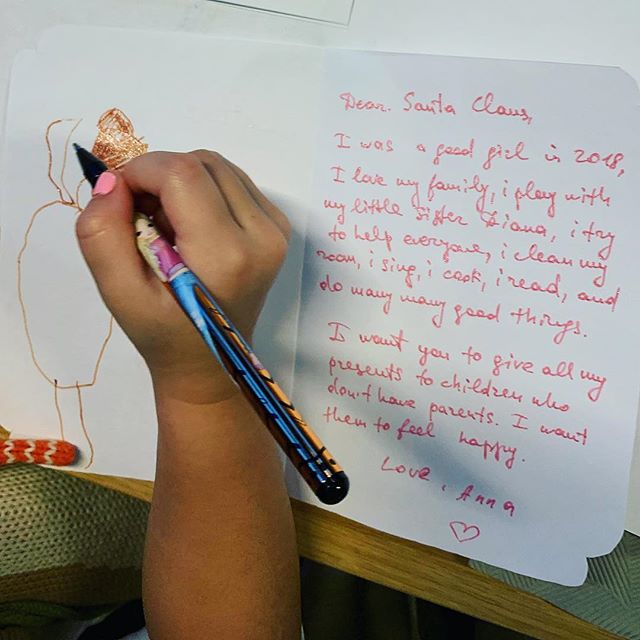 Dear Santa Claus,
I was a good girl in 2018,
I love my family, i play with
my little sister Diana, i try
to help everyone, i clean my
room, i sing, i cook, i read, and
do many many good things.
I want you to give all my
presents to children who
don't have parents. I want
them to feel happy.
Love, Anna